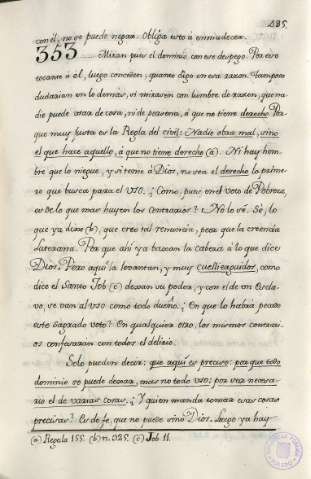 485.
con él, no se puede negar. Obligo esto à enmudecer.
353 Miran pues el dominio con ese despego. Por eso
tocante à el, luego conceden, quanto digo en esta razon. Tampoco
dudarian en lo demás, si mirasen con lumbre de razon, que na-
die puede usar de cosa, ni de persona, à que no tiene derecho. Por
que muy justa es la Regla del civil: Nadie obra mal, sino
el que hace aquello, à que no tiene derecho (a). Ni hay hom-
bre que lo niegue, y si teme à Dios, no vea el derecho lo prime-
ro que busca para el uso. ¿Como, pues en el voto de Pobreza,
es de lo que mas huyen los contrarios? No lo vé. Sé, lo
que ya dixe (b), que creo tal renuncia, peor que la creencia
Luterana. Por que ahi ya tuercen la cabeza à lo que dice
Dios. Pero aqui la levantan, y muy cuellierguidos, como
dice el Santo Job (c) dexan su poder, y con el de un Erede-
vo, se van al uso como todo dueño. ¿En que lo habrá pecado
este sagrado voto? En qualquiera otro, los mismos contrari-
os confesaran con todos el delicto.
Solo pueden decir: que aqui es preciso: por que todo
dominio se puede dexar, mas no todo uso: por ser necesa-
rio el de varias cosas. ¿Y quien manda tomar esas cosas
precisas? Es de fe, que no puede sino Dios. Luego ya hay
(a) Regula 155. (b) n. 325. (c) Job 11.